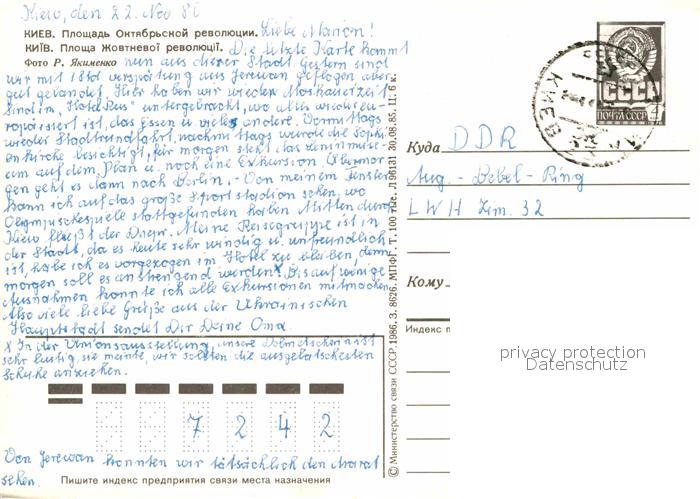 Kiew, den 22. Nov 86
КИЕВ. Площадь Октябрьской революции.
Liebe Marion!
КИЇВ. Площа Жовтневої революції.
Die letzte Karte kommt
Фото Р. Якименко
nun aus dieser Stadt. Gestern sind
wir mit 18h Verspätung aus Jerewan geflogen aber
gut gelandet. Hier haben wir wieder Moskauer Zeit
Sind im "Hotel Rus" untergebracht, wo alles wieder eu-
ropäisiert ist, das Essen u. vieles andere. Vormittags
wieder Stadtrundfahrt, nachmittags wurde die Sophi-
enkirche besichtigt, für morgen steht das Leninmuse-
um auf dem Plan u. noch eine Exkursion. Übermor-
gen geht es dann nach Berlin. - Von meinem Fenster
kann ich auf das große Sportstadion sehen, wo
Olympiche Spiele stattgefunden haben. Mitten durch
Kiew fließt der Dnepr. Meine Reisegruppe ist in
der Stadt, da es heute sehr windig u. unfreundlich
ist, habe ich es vorgezogen im Hotel zu bleiben, denn
morgen soll es anstrengend werden X. Bis auf wenige
Ausnahmen konnte ich alle Exkursionen mitmachen.
Also viele liebe Grüße aus der Ukrainischen
Hauptstadt sendet Dir Deine Oma
X In der Unionsausstellung, unsere Dolmetscherin ist
sehr lustig, sie meinte, wir sollten die ausgelatschesten
Schuhe anziehen.
7 2 4 2
Von Jerewan konnten wir tatsächlich den Ararat
sehen.
Пишите индекс предприятия связи места назначения
© Министерство связи СССР. 1986. З. 8626. МПФГ. Т. 100 тыс. Л 96131 30.08.85. Ц. 6 к.
СССР
ПОЧТА СССР
КИЕВ
Куда DDR
Aug. - Bebel - Ring
LWH Zim. 32
Кому
Индекс п
privacy protection
Datenschutz